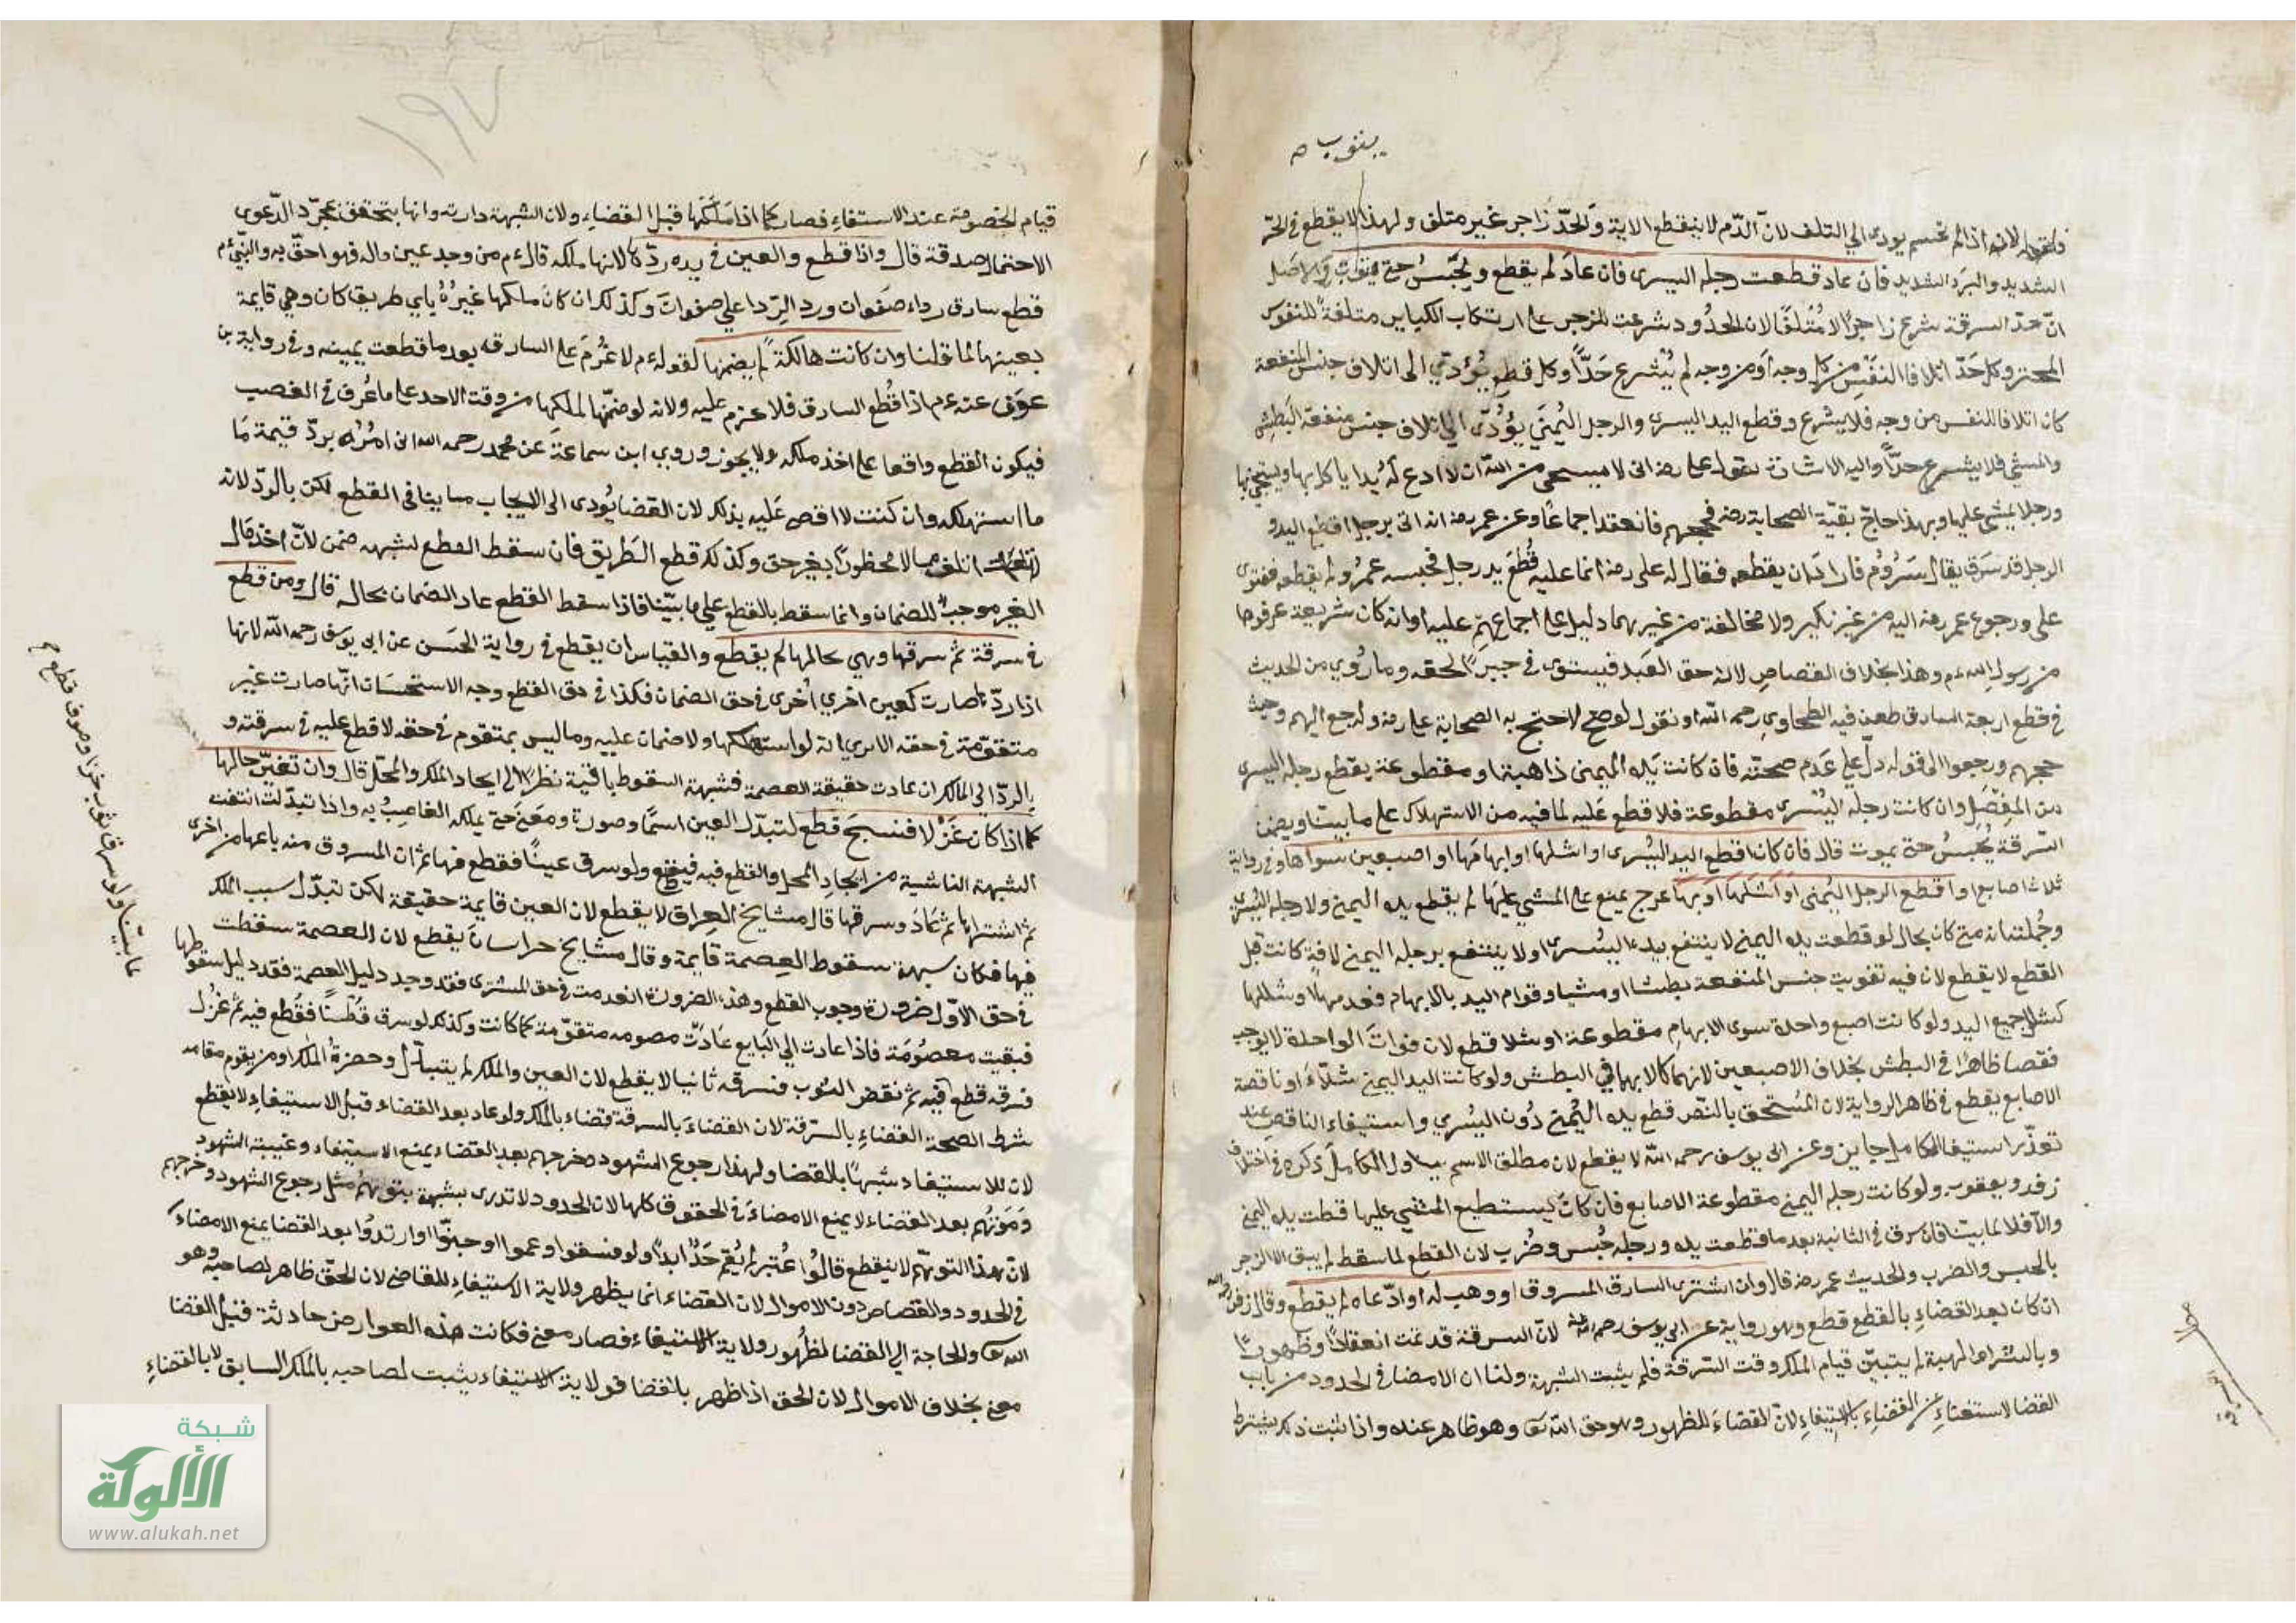 يتوب صح
فاقطعوا لانه اذا لم تحسم يودى الي التلف لان الدم لا ينقطع الا به والحد زاجر غير متلف ولهذا لا يقطع في الحر
الشديد والبرد الشديد فان عاد قطعت رجله اليسرى فان عاد لم يقطع ويحبس حتى يتوب والاصل
ان حد السرقة شرع زاجرا لا متلفا لان الحدود شرعت للزجر عن ارتكاب الكباير متلفة للنفوس
المحترم وكل حد اتلافا النفس من كل وجه او من وجه لم يشرع حدا وكل قطع يؤدي الى اتلاف جنس المنفعة
كان اتلافا للنفس من وجه فلا يشرع وقطع اليد اليسرى والرجل اليمنى يؤدي الى اتلاف جنس منفعة البطش
والمشي فلا يشرع حدا واليه الاشارة بقول علي رضه اني لا ستحيي من الله ان لا ادع له يدا ياكل بها ويستنجي بها
ورجلا يمشي عليها وبهذا حاج بقية الصحابة رضه فحجهم فانعقد اجماعا وعن عمر رضه انه اتي برجل اقطع اليد و
الرجل قد سرق يقال سدوم فاراد ان يقطعه فقال له علي رضه انما عليه قطع يد ورجل فحبسه عمر ولم يقطعه ففتوى
علي ورجوع عمر رضه اليه من غير نكير ولا مخالفة من غيرهما دليل على اجماعهم عليه او انه كان شريعة عرفوها
من رسول الله ءم وهذا بخلاف القصاص لانه حق العبد فيستوى في جبرا لحقه وما روي من الحديث
في قطع اربعة السارق طعن فيه الطحاوي رحمه الله او نقول لو صح لاحتج به الصحابة على علي رضه ولرجع اليهم وحيث
حجهم ورجعوا الى قوله دل على عدم صحته فان كانت يده اليمنى ذاهبة او مقطوعة يقطع رجله اليسرى
من المفصل وان كانت رجله اليسرى مقطوعة فلا قطع عليه لما فيه من الاستهلاك على ما بينا ويضمن
السرقة يحبس حتى يموت قال فان كان اقطع اليد اليسرى او اشلها او ابهامها او اصبعين سواها وفي رواية
ثلاث اصابع او اقطع الرجل اليمنى او اشلها او بها عرج يمنع على المشي عليها لم يقطع يده اليمنى ولا رجله اليسرى
وجملته انه متى كان بحال لو قطعت يده اليمنى لا ينتفع بيده اليسرى او لا ينتفع برجله اليمنى لآفة كانت قبل
القطع لا يقطع لان فيه تفويت جنس المنفعة بطشا او مشيا وقوام اليد بالابهام فعدمها وشللها
كشلل جميع اليد ولو كانت اصبع واحدة سوى الابهام مقطوعة او شلا قطع لان فوات الواحدة لا يوجب
نقصا ظاهرا في البطش بخلاف الاصبعين لانهما كالابهام في البطش ولو كانت اليد اليمنى شلاء او ناقصة
الاصابع يقطع في ظاهر الرواية لان المستحق بالنص قطع يده اليمنى دون اليسرى واستيفاء الناقص عند
تعذر استيفاء الكامل جاين وعن ابي يوسف رحمه الله لا يقطع لان مطلق الاسم يتناول الكامل ذكره في اختلاف
زفر ويعقوب ولو كانت رجله اليمنى مقطوعة الاصابع فان كان يستطيع المشي عليها قطعت يده اليمنى
والا فلا لما بينا فان سرق في الثانية بعد ما قطعت يده ورجله حبس وضرب لان القطع لما سقط لم يبق الا الزجر
بالحبس والضرب والحديث عمر رضه قال وان اشترى السارق المسروق او وهب له او ادعاه لم يقطع وقال زفر رحمه الله
ان كان بعد القضاء بالقطع قطع وهو رواية عن ابي يوسف رحمه الله لان السرقة قد تمت انعقادا وظهورا
وبالشراء والهبة لم يتبين قيام الملك وقت السرقة فلم يثبت الشبهة ولنا ان الامضا في الحدود من باب
القضا لاستغناء عن القضاء بالاستيفاء لان القضاء للظهور وهو حق الله تعا وهو ظاهر عنده واذا ثبت ذلك يشترط
١٩٧
قيام الخصومة عند الاستفاء فصار كما اذا ملكها قبل القضاء ولان الشبهة دارئة وانها يتحقق بمجرد الدعوى
الاحتمال صدقة قال واذا قطع والعين في يده ردها لانها ملكه قال ءم من وجد عين ماله فهو احق به والنبي ءم
قطع سارق رداء صفوان ورد الردا على صفوان وكذلك ان كان ملكها غيره باي طريق كان وهي قايمة
بعينها لما قلنا وان كانت هالكة لم يضمنها لقوله ءم لا غرم على السارق بعد ما قطعت يمينه وفي رواية بن
عوف عنه ءم اذا قطع السارق فلا غرم عليه ولانه لو ضمنها لملكها من وقت الاخذ على ما عرف في الغصب
فيكون القطع واقعا على اخذ ملكه ولا يجوز وروي ابن سماعة عن محمد رحمه الله اني امره برد قيمة ما
ما استهلكه وان كنت لا اقضي عليه بذلك لان القضا يودى الى الايجاب مما ينافى القطع لكن بالرد لانه
اتلف مالا محظورا بغير حق وكذلك قطع الطريق فان سقط القطع لشبهه ضمن لان اخذ مال
الغير موجب للضمان وانما سقط بالقطع علي ما بينا فاذا سقط القطع عاد الضمان بحاله قال ومن قطع
في سرقة ثم سرقها وهي بحالها لم يقطع والقياس ان يقطع في رواية الحسن عن ابي يوسف رحمه الله لانها
اذا ردها صارت كعين اخري اخرى في حق الضمان فكذا في حق القطع وجه الاستحسان انها صارت غير
متقومة في حقه الا يري انه لو استهلكها ولا ضمان عليه وما ليس بمتقوم في حقه لا قطع عليه في سرقته و
بالرد الى المالك ان عادت حقيقة العصمة فشبهة السقوط باقية نظرا الى ايحاد الملك والمحل قال وان تغير حالها
كما اذا كان غزلا فنسج قطع لتبدل العين اسما وصورة ومعنى حتى يملكه الغاصب به واذا تبدلت انتفت
الشبهة الناشية من اتحاد المحل والقطع فيه فيقطع ولو سرق عينا فقطع فيها ثم ان المسروق منه باعها من اخرى
ثم اشتراها ثم عاد وسرقها قال مشايخ العراق لا يقطع لان العين قايمة حقيقة لكن تبدل سبب الملك
فيها فكان شبهة سقوط العصمة قايمة وقال مشايخ خراسان يقطع لان العصمة سقطت
في حق الاول ضرورة وجوب القطع وهذه الضرورة انعدمت في حق المشترى فقد وجد دليل العصمة فقد دليل سقوطها
فبقيت معصومة فاذا عادت الي البايع عادت معصومه متقومة كما كانت وكذلك لو سرق قطنا فقطع فيه ثم غزل
فسرقه قطع فيه ثم نقض الثوب فسرقه ثانيا لا يقطع لان العين والملك لم يتبدل وحضرة الملك او من يقوم مقامه
شرط لصحة القضاء بالسرقة لان القضاء بالسرقة قضاء بالملك ولو عاد بعد القضاء قبل الاستيفاء لا يقطع
لان للاستيفاء شبها بالقضا ولهذا رجوع الشهود مخرجهم بعد القضاء يمنع الاستيفاء وغيبة الشهود
وموتهم بعد القضاء لا يمنع الامضاء في الحقوق كلها لان الحدود لا تدرى بشبهة يتوهم مثل رجوع الشهود وخرجهم
لان هذا التوهم لا ينقطع قالوا اعتبر لم يقم حد ابدا ولو فسقوا او عموا او جنوا او ارتدوا بعد القضا يمنع الامضاء
في الحدود والقصاص دون الاموال لان القضاء انما يظهر ولاية الاستيفاء للقاضي لان الحق ظاهر لصاحبه وهو
الله تعا والحاجة الي القضا لظهور ولاية الاستيفاء فصار معنى فكانت هذه العوارض حادثة قبل القضا
معنى بخلاف الاموال لان الحق اذا ظهر بالقضا فولاية الاستيفاء يثبت لصاحبه بالملك السابق لا بالقضاء
ما بينا ولو سرق ثوب خز او صوف قطع
شبكة
الألوكة
www.alukah.net